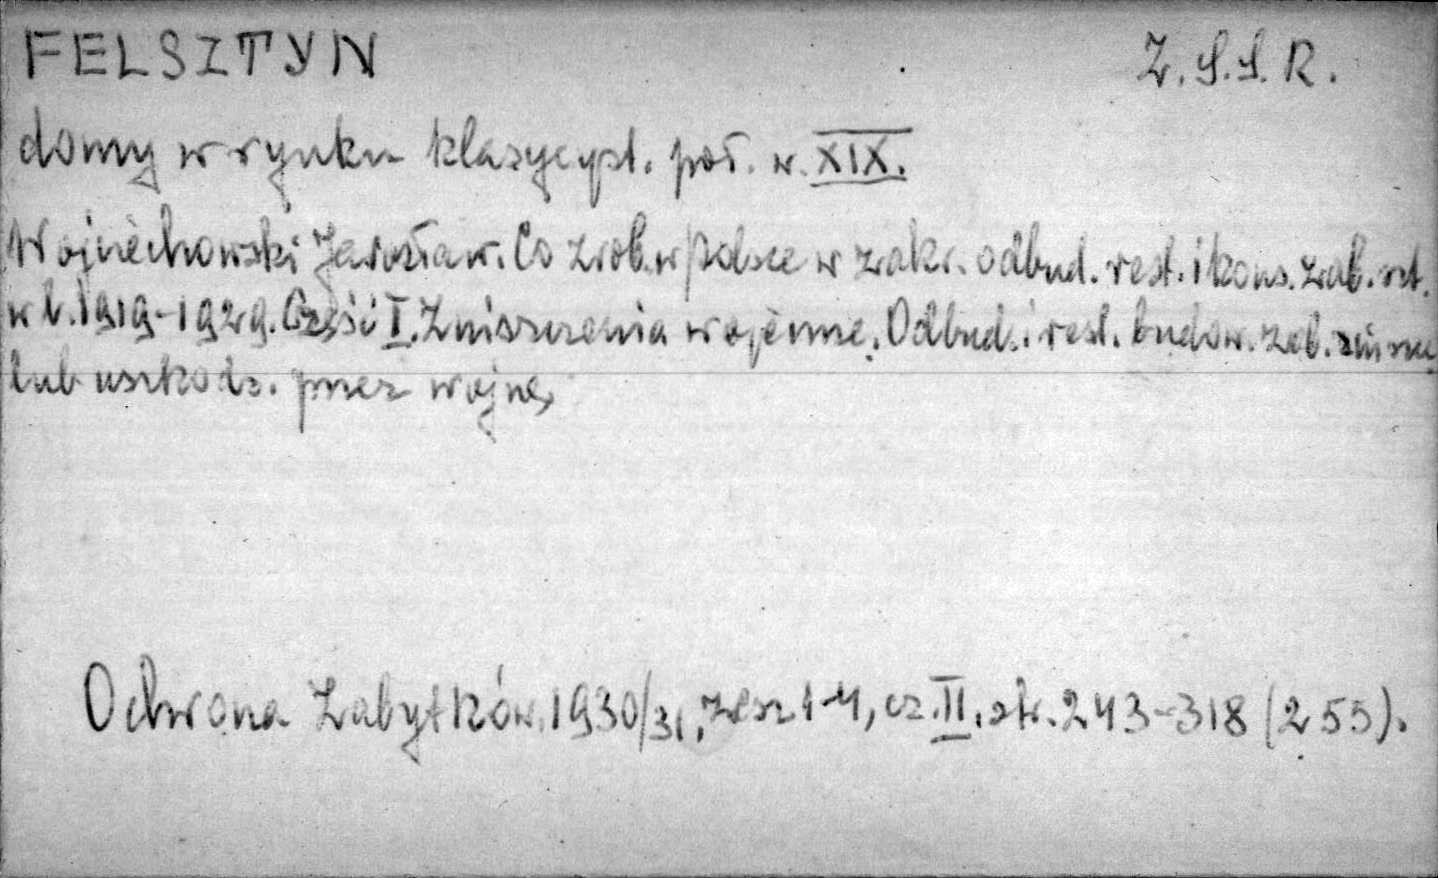 FELSZTYN Z.S.S.R.
domy w rynku klasycyst. poł. w. XIX.
Wojciechowski Jarosław. Co zrob. w Polsce w zakr. odbud. rest. i kons. zab. szt.
w l. 1919-1929. Część I. Zniszczenia wojenne. Odbud. i rest. budow. zab. zniszcz.
lub uszkodz. przez wojnę,
Ochrona Zabytków. 1930/31, zesz 1-4, cz. II. str. 243-318 (255).